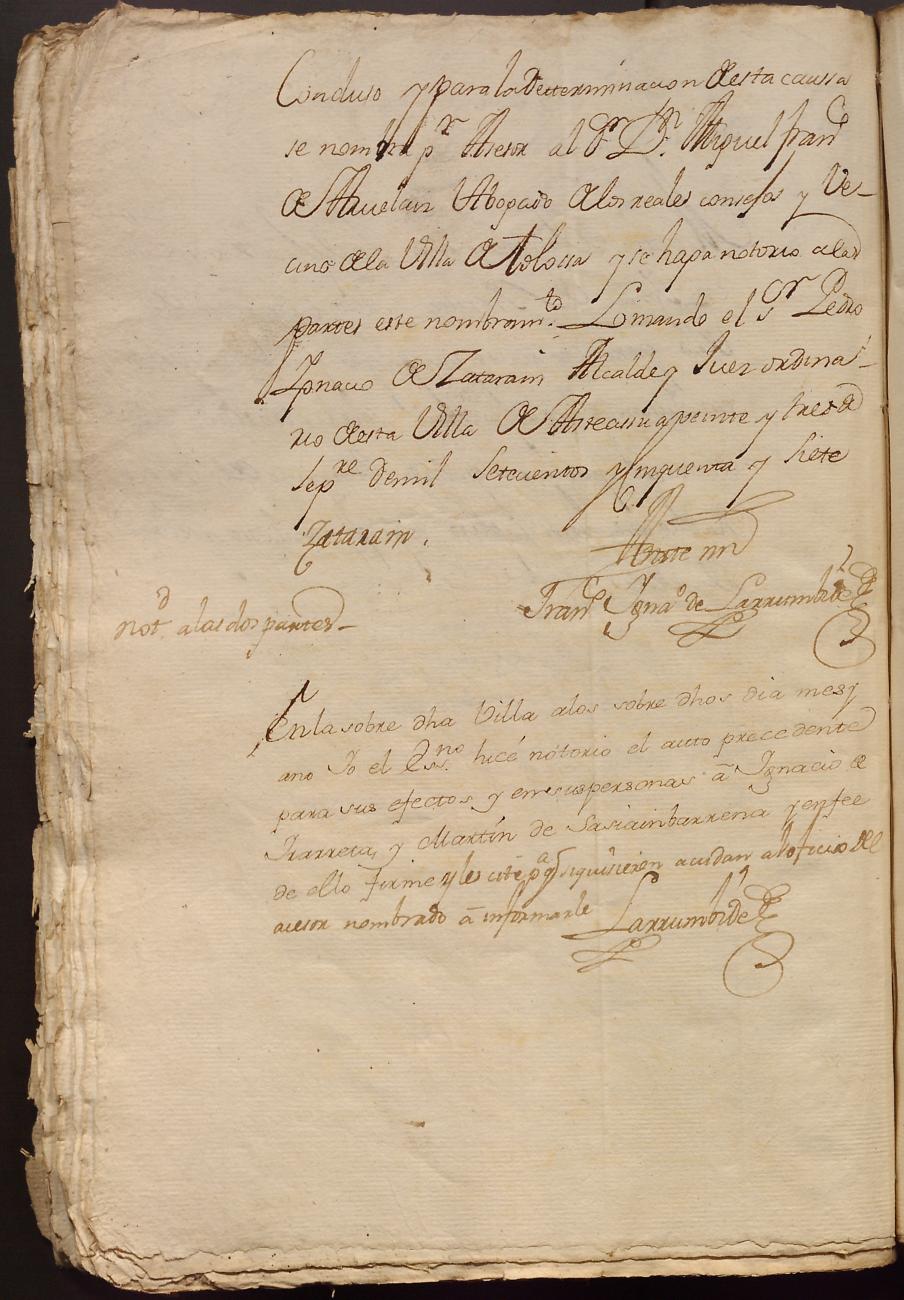 Concluso y para la Determinacion de esta caussa
se nombra pr. Asesor al Sr. Dn. Miguel Franco
de Abogado de los reales consejos y Ve-
cino de la Villa de tolossa y se haga notorio a las
partes este nombramto. Lo mando el Sr. Pedro
Ignacio de Zatarain Alcalde y Juez ordina-
rio de esta Villa de Asteassu a veinte y tres de
Sepre. de mil Setecientos y cinquenta y siete
Zatarain.
Ante mi
Franco. Ignao. de Larrumbide
Notd. a las dos partes
En la sobre dha Villa a los sobre dhos dia mes y
ano Yo el Essno. hicé notorio el auto precedente
para sus efectos y en sus personas â Ignacio de
Irarreta, y Martín de Sasiainbarrena y en fee
de ello firme y les cité pa. q si quisieren acudan al oficio del
acesor nombrado â informarle Larrumbide